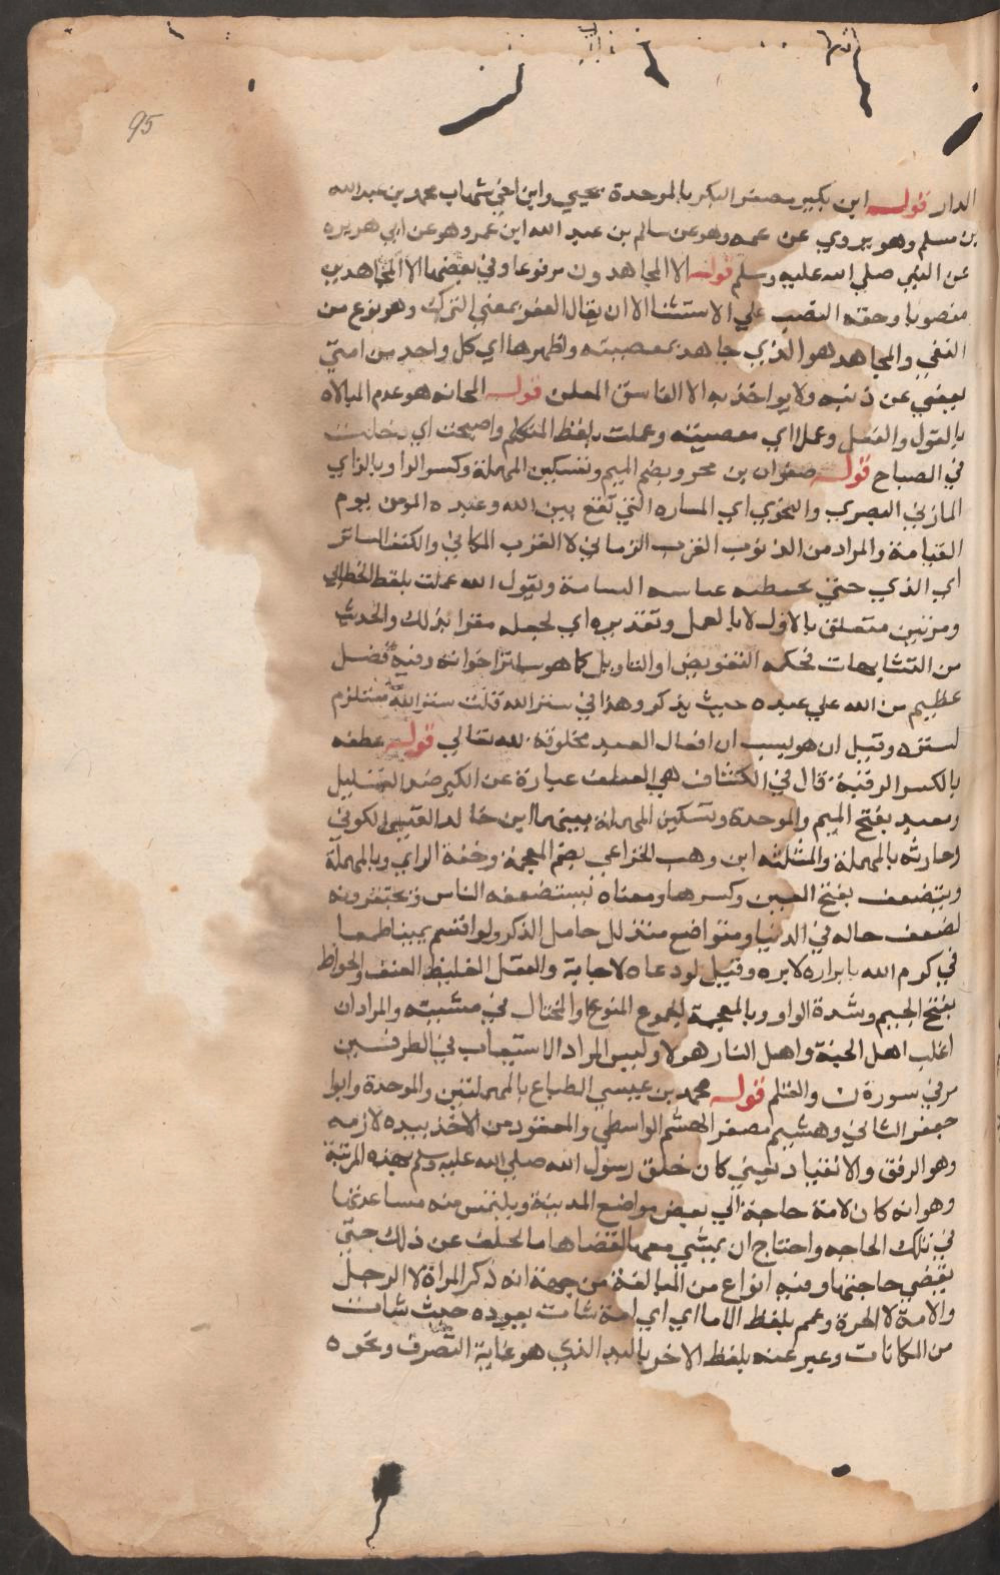 95
الدار قوله ابن بكير مصغر البكر بالموحدة يحيي وابن اخي شهاب محمد بن عبد الله
بن مسلم وهو يروي عن عمه وهو عن سالم بن عبد الله ابن عمر وهو عن ابي هريره
عن النبي صلي الله عليه وسلم قوله الا المجاهدون مرفوعا وفي بعضها الا المجاهدين
منصوبا وحقه النصب علي الاستثنا الا ان يقال العفو بمعني الترك وهو نوع من
النفي والمجاهد هو الذي جاهد بمعصيته واظهرها اي كل واحد من امتي
يعفي عن ذنبه ولا يواخذ به الا الفاسق المعلن قوله المجانه هو عدم المبالاه
بالقول والفعل وعملا اي معصيته وعملت بلفظ المتكلم واصبحت اي دخلت
في الصباح قوله صفوان بن محرو بضم الميم وتسكين المهملة وكسر الرا وبالزاي
المازني البصري والنجوي اي المساره التي تقع بين الله وعبده المومن يوم
القيامة والمراد من الدنو القرب الزماني لا القرب المكاني والكنف الساتر
اي الذي حتي ويقول الله عملت بلفظ الخطاب
ومرتين متعلق بالاول لا بالعمل وتقديره اي لجعله مقرا بذلك والحديث
من المتشابهات فحكمه التفويض او التاويل كما هو وفيه فضل
عظيم من الله علي عبده حيث يذكر وهذا في ستر الله قلت ستر الله مستلزم
لستره وقيل ان هو بسبب ان افعال العبد مخلوقة لله تعالي قوله عطفه
بالكسر الرقبة قال في الكشاف هي العطف عبارة عن الكبر
ومعبد بفتح الميم والموحدة وتسكين المهملة بينهما ابن خالد القيسي الكوفي
وحارثه بالمهملة والمثلثه ابن وهب الخزاعي بضم المعجمة وخفة الزاي وبالمهملة
ويتضعف بفتح العين وكسرها ومعناه يستضعفه الناس ويحتقرونه
لضعف حاله في الدنيا ومتواضع متذلل خامل الذكر ولو اقسم يمينا طمعا
في كرم الله بابراره لابره وقيل لو دعاه لاجابه والعتل الغليظ العنف والجواظ
بفتح الجيم وشدة الواو وبالمعجمة الجموع المنوع او المختال في مشيته والمراد ان
اغلب اهل الجنة واهل النار هولا وليس المراد الاستيعاب في الطرفين
مر في سورة ن والقلم قوله محمد بن عيسي الطباع بالمهملتين والموحدة وابو
جعفر الثاني وهشيم مصغر الهشم الواسطي والمقصود من الاخذ بيده لازمه
وهو الرفق والانقياد يعني كان خلق رسول الله صلي الله عليه وسلم بهذه المرتبة
وهو انه كان لامة حاجة الي بعض مواضع المدينة ويلتمس منه مساعدتها
في تلك الحاجه واحتاج ان يمشي معها لقضاها ما تخلف عن ذلك حتي
يقضي حاجتها وفيه انواع من المبالغة من جهة انه ذكر المراة لا الرجل
والامة لا الحرة وعمم بلفظ الاما اي اي امة شات بعوده حيث شات
من المكانات وعبر عنه بلفظ الاخذ باليد الذي هو غاية التصرف ونحوه